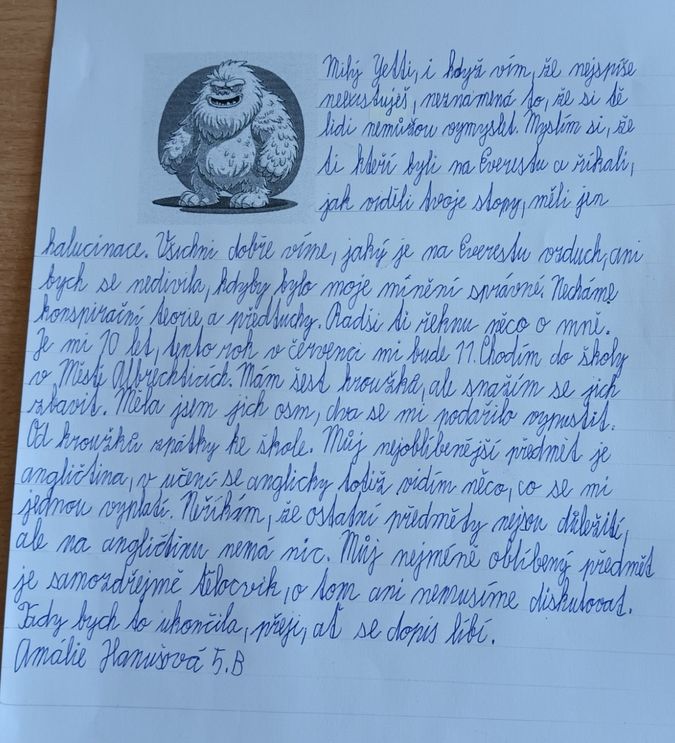 Milý Yetti, i když vím, že nejspíše
neexistuješ, neznámená to, že si tě
lidi nemůžou vymyslet. Myslím si, že
ti kteří byli na Everestu a říkali,
jak viděli tvoje stopy, měli jen
halucinace. Všichni dobře víme, jaký je na Everestu vzduch, ani
bych se nedivila, kdyby bylo moje mínění správné. Necháme
konspirační teorie a předtuchy. Radši ti řeknu něco o mně.
Je mi 10 let, tento rok v červenci mi bude 11. Chodím do školy
v Městě Albrechticích. Mám šest kroužků, ale snažím se jich
zbavit. Měla jsem jich osm, dva se mi podařilo vypustit.
Od kroužků zpátky ke škole. Můj nejoblíbenější předmět je
angličtina, v učení se anglicky totiž vidím něco, co se mi
jednou vyplatí. Neříkám, že ostatní předměty nejsou důležití,
ale na angličtinu nemá nic. Můj nejméně oblíbený předmět
je samozdřejmě tělocvik, o tom ani nemusíme diskutovat.
Tady bych to ukončila, přeji, ať se dopis líbí.
Amálie Hanušová 5.B